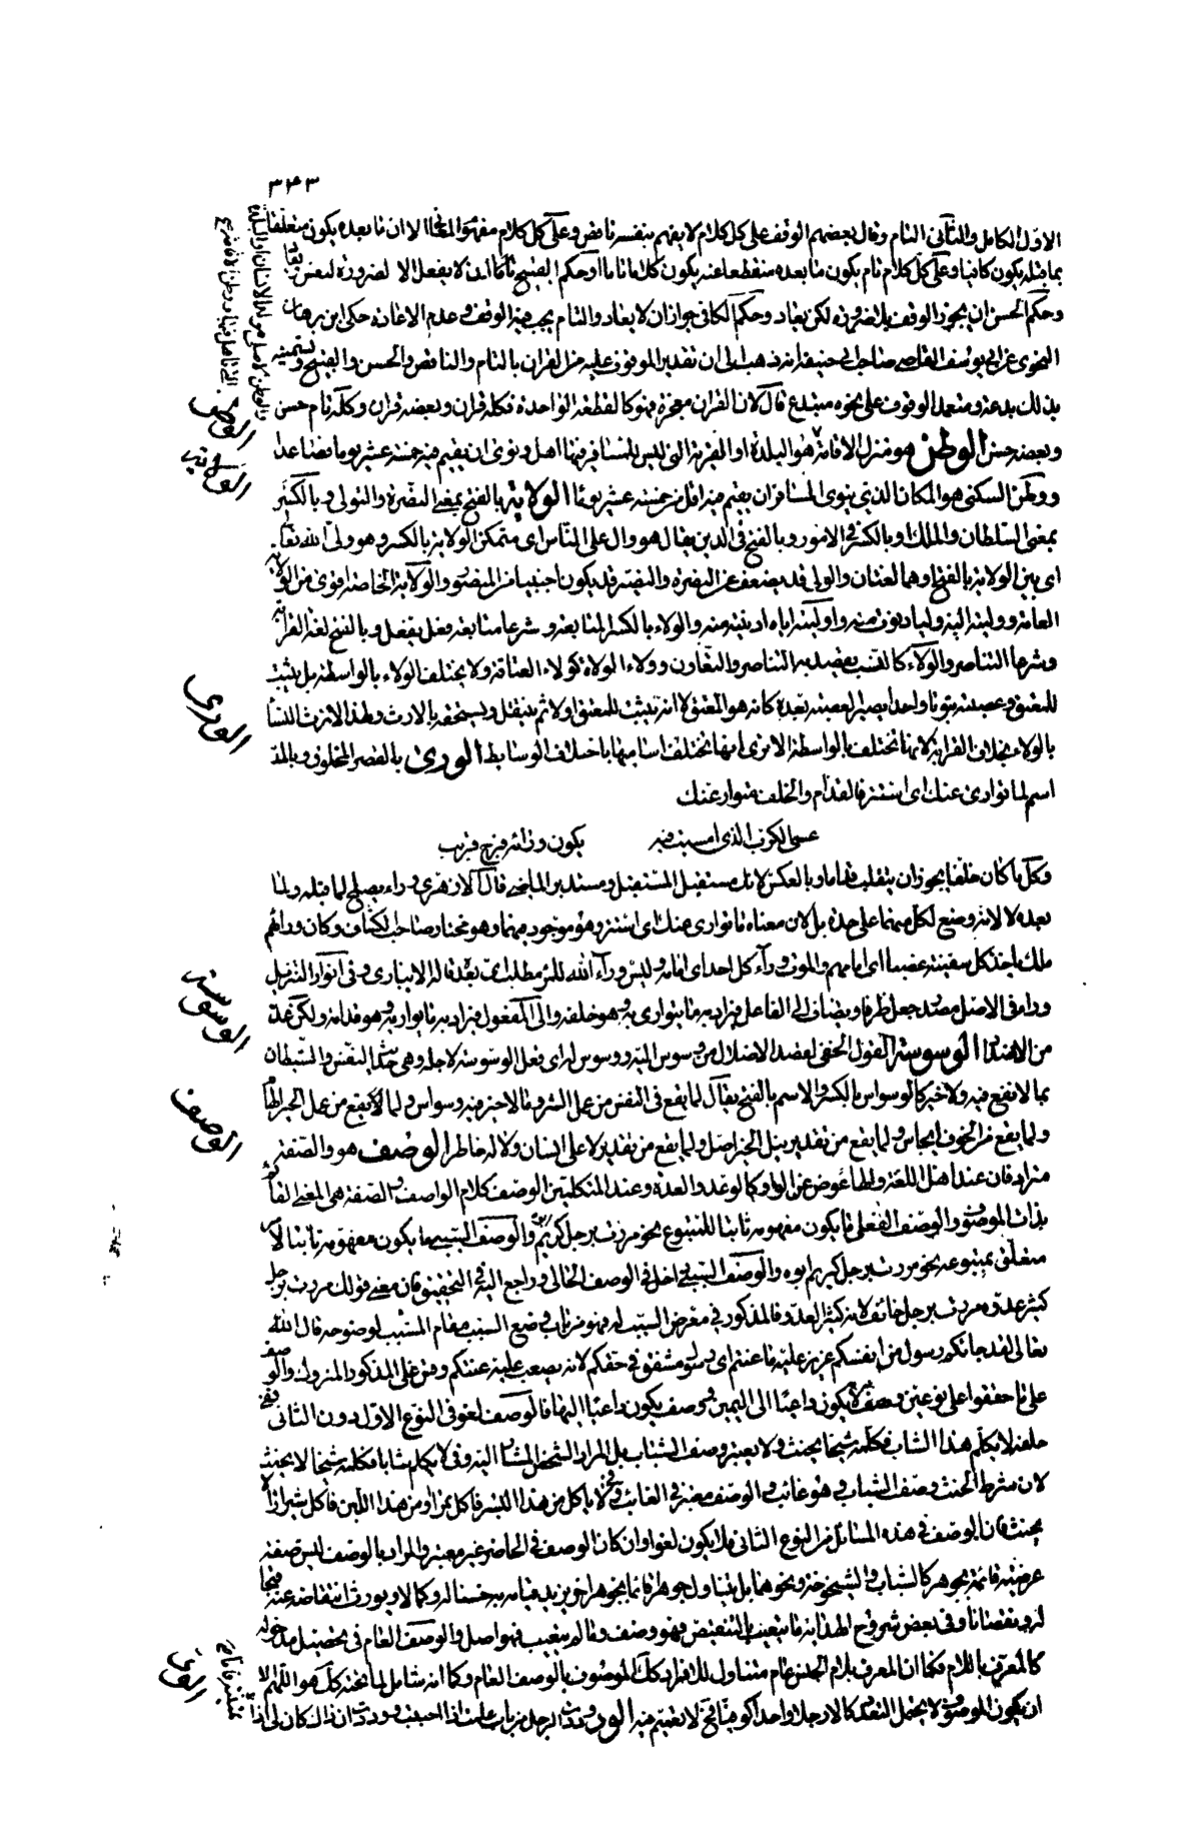 ٣٤٣
الاول الكامل والثانى التام وقال بعضهم الوقف على كل كلام لا يفهم بنفسه ناقص وعلى كل كلام مفهوم المعانى الا ان ما بعده يكون متعلقا
بما قبله يكون كافيا وعلى كل كلام تام يكون ما بعده منقطعا عنه يكون كلاما تاما وحكم القبيح ان لا يفعل الا لضرورة
وحكم الحسن ان يجوز الوقف بلا ضرورة لكن يعاد وحكم الكافى جواز ان لا يعاد والتام يجب فيه الوقف وعدم الاعادة حكى ابن برهان
النحوى عن ابى يوسف القاضى صاحب ابى حنيفة انه ذهب الى ان تقدير الموقوف عليه من القران بالتام والناقص والحسن والقبيح وتسميته
بذلك بدعة ومتعمد الوقوف على نحوه مبتدع قال لان القران معجزة فهو كالقطعة الواحدة فكله قران وبعضه قران وكله تام حسن
وبعضه حسن الوطن هو منزل الاقامة هو البلدة او القرية التى ليس للمسافر فيها اهل ونوى ان يقيم فيه خمسة عشر يوما فصاعدا
ووطن السكنى هو المكان الذى ينوى المسافر ان يقيم فيه اقل من خمسة عشر يوما الولاية بالفتح بمعنى النصرة والتولى وبالكسر
بمعنى السلطان والملك او بالكسر فى الامور وبالفتح فى الدين يقال هو وال على الناس اى متمكن الولاية بالكسر وهو ولى الله تعالى
اى بين الولاية بالفتح وهما لغتان والولى قد يضعف عن النصرة والنصير قد يكون اجنبيا من المنصور والولاية الخاصة اقوى من الولاية
العامة ووليه اليه وليا دنوت منه واوليته اياه ادنيته منه والولاء بالكسر المتابعة وشرعا متابعة فعل بفعل وبالفتح لغة القرابة
وشرعا التناصر والولاء كالنسب يقصد به التناصر والتعاون وولاء الموالاة كولاء العتاقة ولا يختلف الولاء بالواسطة بل يثبت
للمعتق وعصبته ثبوتا واحدا يصير لعصبته بعده كانه هو المعتق لا انه يثبت للمعتق اولا ثم ينتقل ويستحقه بالارث ولهذا لا ترث النساء
بالولاء بخلاف القرابة لانها تختلف بالواسطة الا ترى انها يختلف اساميها باختلاف الوسايط الورى بالقصر المخلوق وبالمد
اسم لما توارى عنك اى استتر فالقدام والخلف متوار عنك
عسى الكرب الذى امسيت فيه يكون وراءه فرج قريب
وكل ما كان خلفا يجوز ان ينقلب قداما وبالعكس لانك مستقبل المستقبل ومستدبر الماضى قال الازهرى وراء يصلح لما قبله ولما
بعده لا لانه وضع لكل منهما على حدة بل لان معناه ما توارى عنك اى استتر وهو موجود فيهما وهو مختار صاحب الكشاف وكان وراءهم
ملك ياخذ كل سفينة غصبا اى امامهم والموت وراء كل احد اى امامه وليس وراء الله للمرء مطلب اى بعد قاله الانبارى وفى انوار التنزيل
وراء فى الاصل مصدر جعل ظرفا ويضاف الى الفاعل فيراد به ما يتوارى به وهو خلفه والى المفعول فيراد به ما يواريه وهو قدامه ولذلك عد
من الاضداد الوسوسة القول الخفى لقصد الاضلال من وسوس اليه ووسوس له اى فعل الوسوسة لاجله وهى حديث النفس والشيطان
بما لا نفع فيه ولا خير كالوسواس بالكسر والاسم بالفتح يقال لما يقع فى النفس من عمل الشر وما لا خير فيه وسواس ولما يقع من عمل الخير الهام
ولما يقع من الخوف ايجاس ولما يقع من تقدير نيل الخير امل ولما يقع من تقدير لا على الانسان ولا له خاطر الوصف هو والصفة
مترادفان عند اهل اللغة والهاء عوض عن الواو كالوعد والعدة وعند المتكلمين الوصف كلام الواصف والصفة هى المعنى القائم
بذات الموصوف والوصف الفعلى ما يكون مفهومه ثابتا للمتبوع نحو مررت برجل كريم والوصف السببى ما يكون مفهومه ثابتا لامر
متعلق بمتبوعه نحو مررت برجل كريم ابوه والوصف السببى داخل فى الوصف الحالى وراجع اليه فى التحقيق فان معنى قولك مررت برجل
كثير عدوه مررت برجل خائف لانه كثير العدو فالمذكور فى معرض السبب له فهو من باب وضع السبب مقام المسبب لوضوحه قال الله
تعالى لقد جاءكم رسول من انفسكم عزيز عليه ما عنتم اى رسول مشفق فى حقكم لانه يصعب عليه عنتكم وقس على المذكور المتروك والوصف
على ما حققوا على نوعين وصف لا يكون داعيا الى اليمين ووصف يكون داعيا اليها فالوصف لغو فى النوع الاول دون الثانى ففى
حلف لا يكلم هذا الشاب فكلمه شيخا يحنث ولا يعتبر وصف الشباب بل المراد الشخص المشار اليه وفى لا يكلم شابا فكلمه شيخا لا يحنث
لان شرط الحنث وصف الشباب وهو غائب والوصف معتبر فى الغائب وفى نحو لا ياكل من هذا البسر فاكل تمرا او من هذا اللبن فاكل شيرازا لا
يحنث فان الوصف فى هذه المسائل من النوع الثانى فلا يكون لغوا وان كان الوصف فى الحاضر غير معتبر والمراد بالوصف ليس صفة
عرضية قائمة بجوهر كالشباب والشيخوخة ونحوهما بل يتناول جوهرا قائما بجوهر اخر يزيد قيامه به حسنا له وكمالا ويورث انتقاصه عنه قبحا
له ونقصانا وفى بعض شروح الهداية ما يتعيب بالتبعيض فهو وصف وما لم يتعيب فهو اصل والوصف العام فى تحصيل مدخوله
كالمعرف باللام فكما ان المعرف بلام الجنس عام متناول للافراد كذلك الموصوف بالوصف العام وكما انه شامل لما تحته كذلك هو اللهم الا
ان يكون الموصوف لا يحتمل التعدد كالا رجلا واحدا كوفيا
الوطن
الولاية
الورى
الوسوسة
الوصف